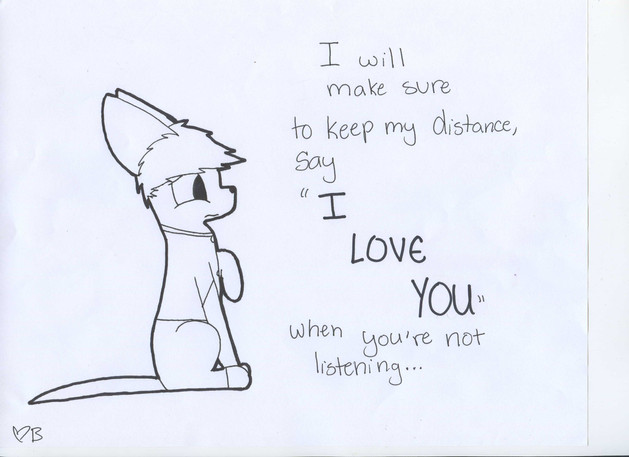 I will
make sure
to keep my distance,
Say
"I
LOVE
YOU"
when you're not
listening...
♡B